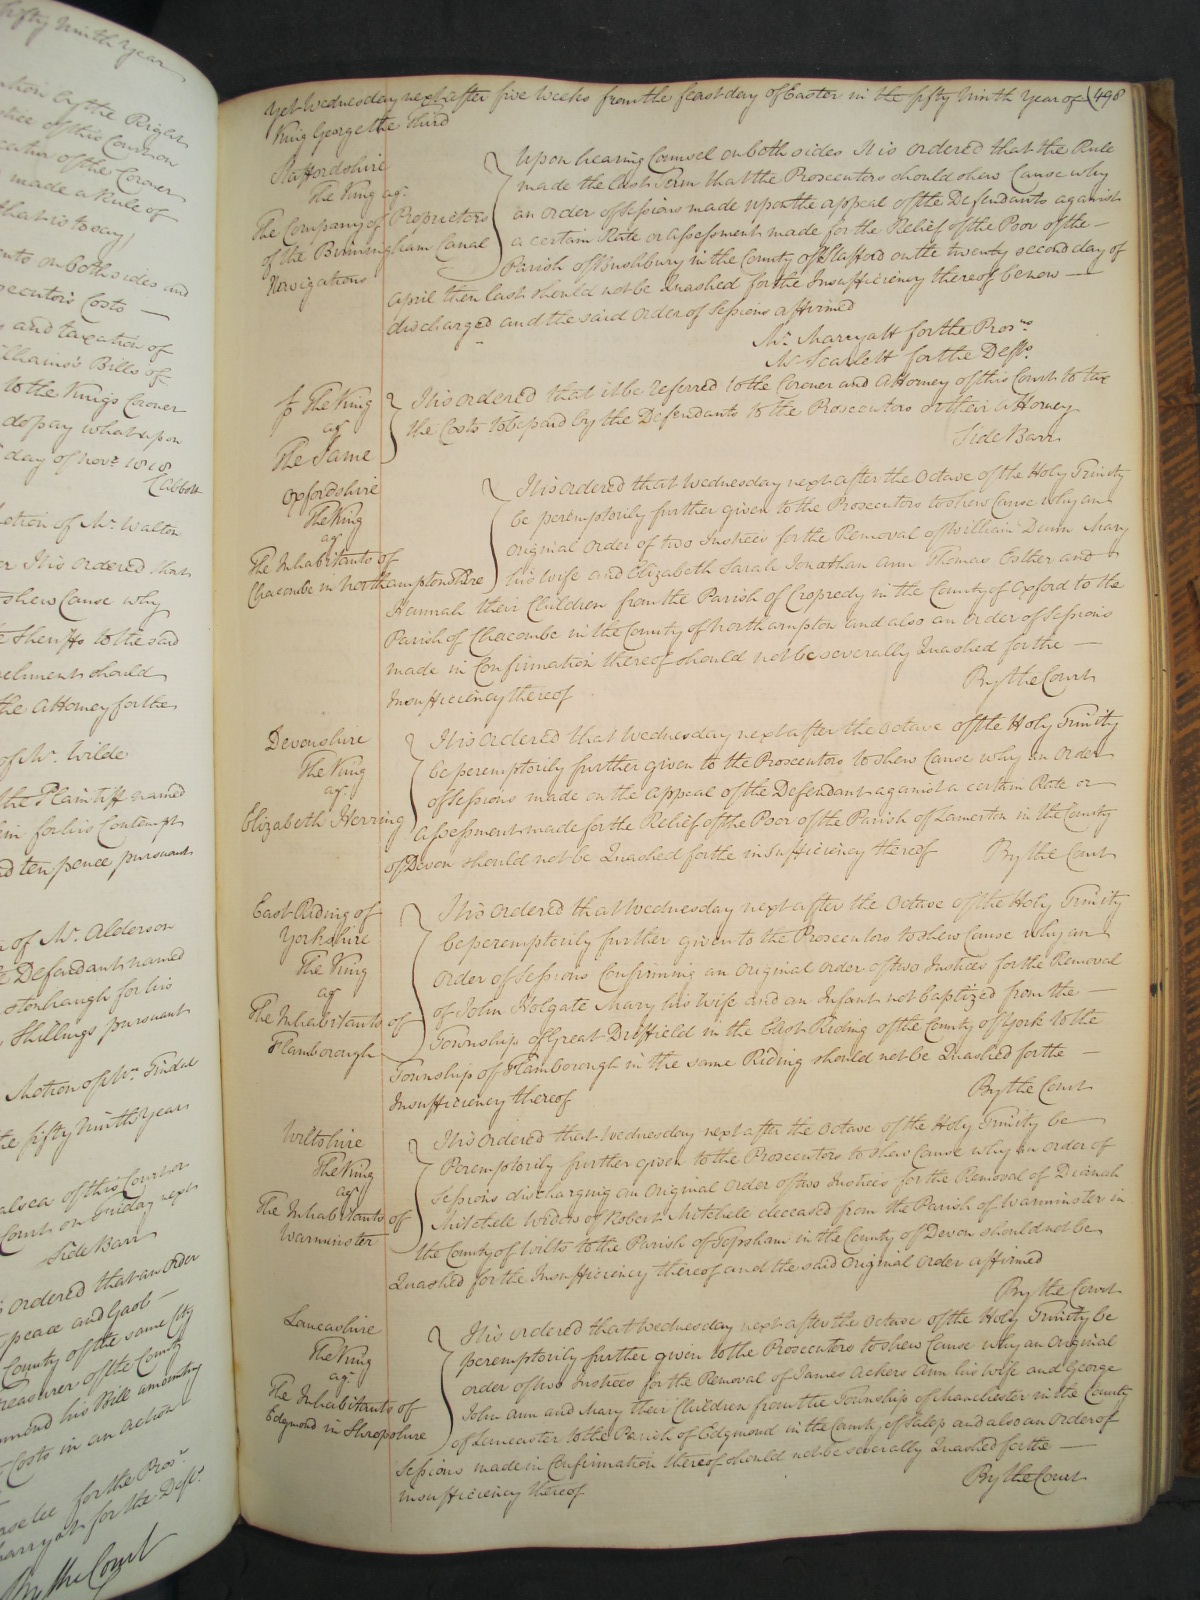 fifty Ninth Year
ation by the Right
stice of this Court on
cution of the Coroner
made a Rule of
that is to say
ents on both sides and
secutors Costs —
and taxation of
Williams's Bills of
to the Kings Coroner
do pay what upon
day of Novr. 1818
C Abbott
Motion of Mr. Walton
It is ordered that
shew Cause why
Sheriffs to the said
should
the Attorney for the
of Mr. Wilde
the Plaintiff named
him for his Contempt
ten pence pursuant
of Mr. Alderson
Defendant named
stonhaugh for his
Shillings pursuant
Motion of Mr. Tindal
the fifty Ninth Year
alsea of this Court or
Court on Friday next
Side Barr
ordered that an order
peace and Gaol —
County of the same City
Treasurer of the County
his Bill amounting
Costs in an action
for the Prosr.
Marryat for the Deft.
By the Court
Yet Wednesday next after five Weeks from the feast day of Easter in the fifty Ninth Year of 498
King George the Third
Staffordshire
The King agt.
The Company of Proprietors
of the Birmingham Canal
Navigations
Upon hearing Counsel on both sides It is ordered that the Rule
made the last Term that the Prosecutors should shew Cause why
an order of Sessions made upon the appeal of the Defendants against
a certain Rate or assessment made for the Relief of the Poor of the —
Parish of Bushbury in the County of Stafford on the twenty second day of
April then last should not be Quashed for the Insufficiency thereof be now —
discharged and the said order of Sessions affirmed
Mr. Marryatt for the Prosrs.
Mr. Scarlett for the Defts.
The King
agt
The Same
It is ordered that it be referred to the Coroner and Attorney of this Court to tax
the Costs to be paid by the Defendants to the Prosecutors or their Attorney
Side Barr
Oxfordshire
The King
agt
The Inhabitants of
Chacombe in Northamptonshire
It is ordered that Wednesday next after the Octave of the Holy Trinity
be peremptorily further given to the Prosecutors to shew Cause why an
original order of two Justices for the Removal of William Dunn Mary
his Wife and Elizabeth Sarah Jonathan Ann Thomas Esther and
Hannah their Children from the Parish of Cropredy in the County of Oxford to the
Parish of Chacombe in the County of Northampton and also an order of Sessions
made in Confirmation thereof should not be severally Quashed for the —
Insufficiency thereof
By the Court
Devonshire
The King
agt.
Elizabeth Herring
It is ordered that Wednesday next after the Octave of the Holy Trinity
be peremptorily further given to the Prosecutors to shew Cause why an Order
of Sessions made on the appeal of the Defendant against a certain Rate or
assessment made for the Relief of the Poor of the Parish of Lamerton in the County
of Devon should not be Quashed for the insufficiency thereof By the Court
East Riding of
Yorkshire
The King
agt
The Inhabitants of
Flamborough
It is ordered that Wednesday next after the Octave of the Holy Trinity
be peremptorily further given to the Prosecutors to shew Cause why an
order of Sessions Confirming an Original order of two Justices for the Removal
of John Holgate Mary his Wife and an Infant not baptized from the —
Township of Great Driffield in the East Riding of the County of York to the
Township of Flamborough in the same Riding should not be Quashed for the —
Insufficiency thereof
By the Court
Wiltshire
The King
agt
The Inhabitants of
Warminster
It is ordered that Wednesday next after the Octave of the Holy Trinity be
Peremptorily further given to the Prosecutors to shew Cause why an order of
Sessions discharging an Original order of two Justices for the Removal of Dianah
Mitchele Widow of Robert Mitchele deceased from the Parish of Warminster in
the County of Wilts to the Parish of Topsham in the County of Devon should not be
Quashed for the Insufficiency thereof and the said Original Order affirmed
By the Court
Lancashire
The King
agt.
The Inhabitants of
Edgmond in Shropshire
It is ordered that Wednesday next after the Octave of the Holy Trinity be
peremptorily further given to the Prosecutors to shew Cause why an Original
order of two Justices for the Removal of James Ackers Ann his Wife and George
John Ann and Mary their Children from the Township of Manchester in the County
of Lancaster to the Parish of Edgmond in the County of Salop and also an Order of
Sessions made in Confirmation thereof should not be severally Quashed for the —
insufficiency thereof
By the Court